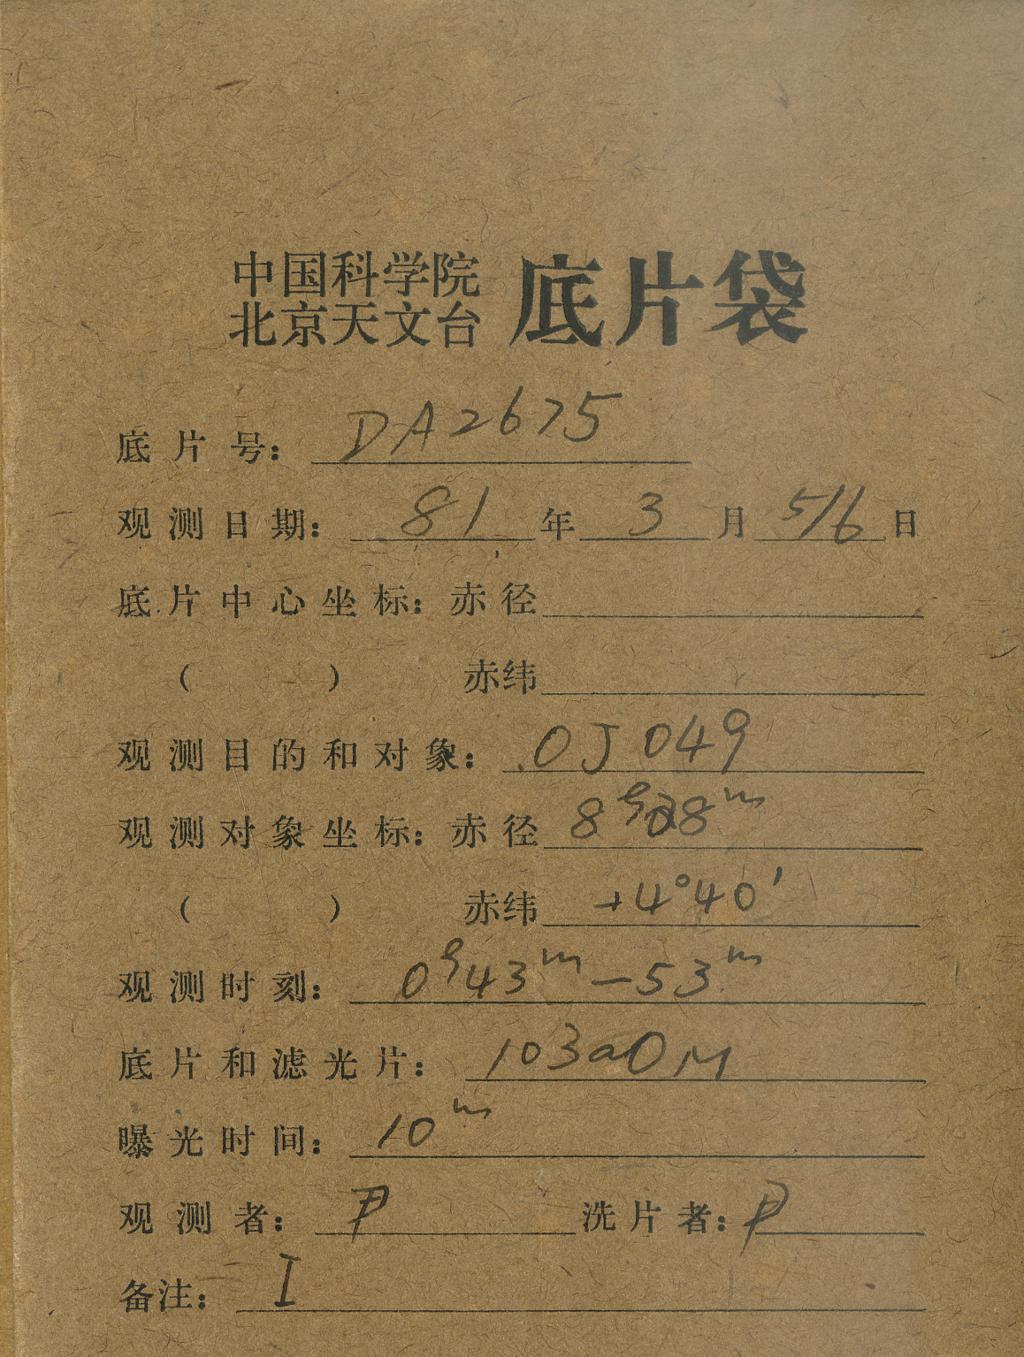 中国科学院
北京天文台 底片袋
底片号: DA2675
观测日期: 81 年 3 月 5/6 日
底片中心坐标: 赤径
( ) 赤纬
观测目的和对象: OJ 049
观测对象坐标: 赤径 8h28m
( ) 赤纬 +4°40'
观测时刻: 0h43m-53m
底片和滤光片: 103aO M
曝光时间: 10m
观测者: 洗片者:
备注: I